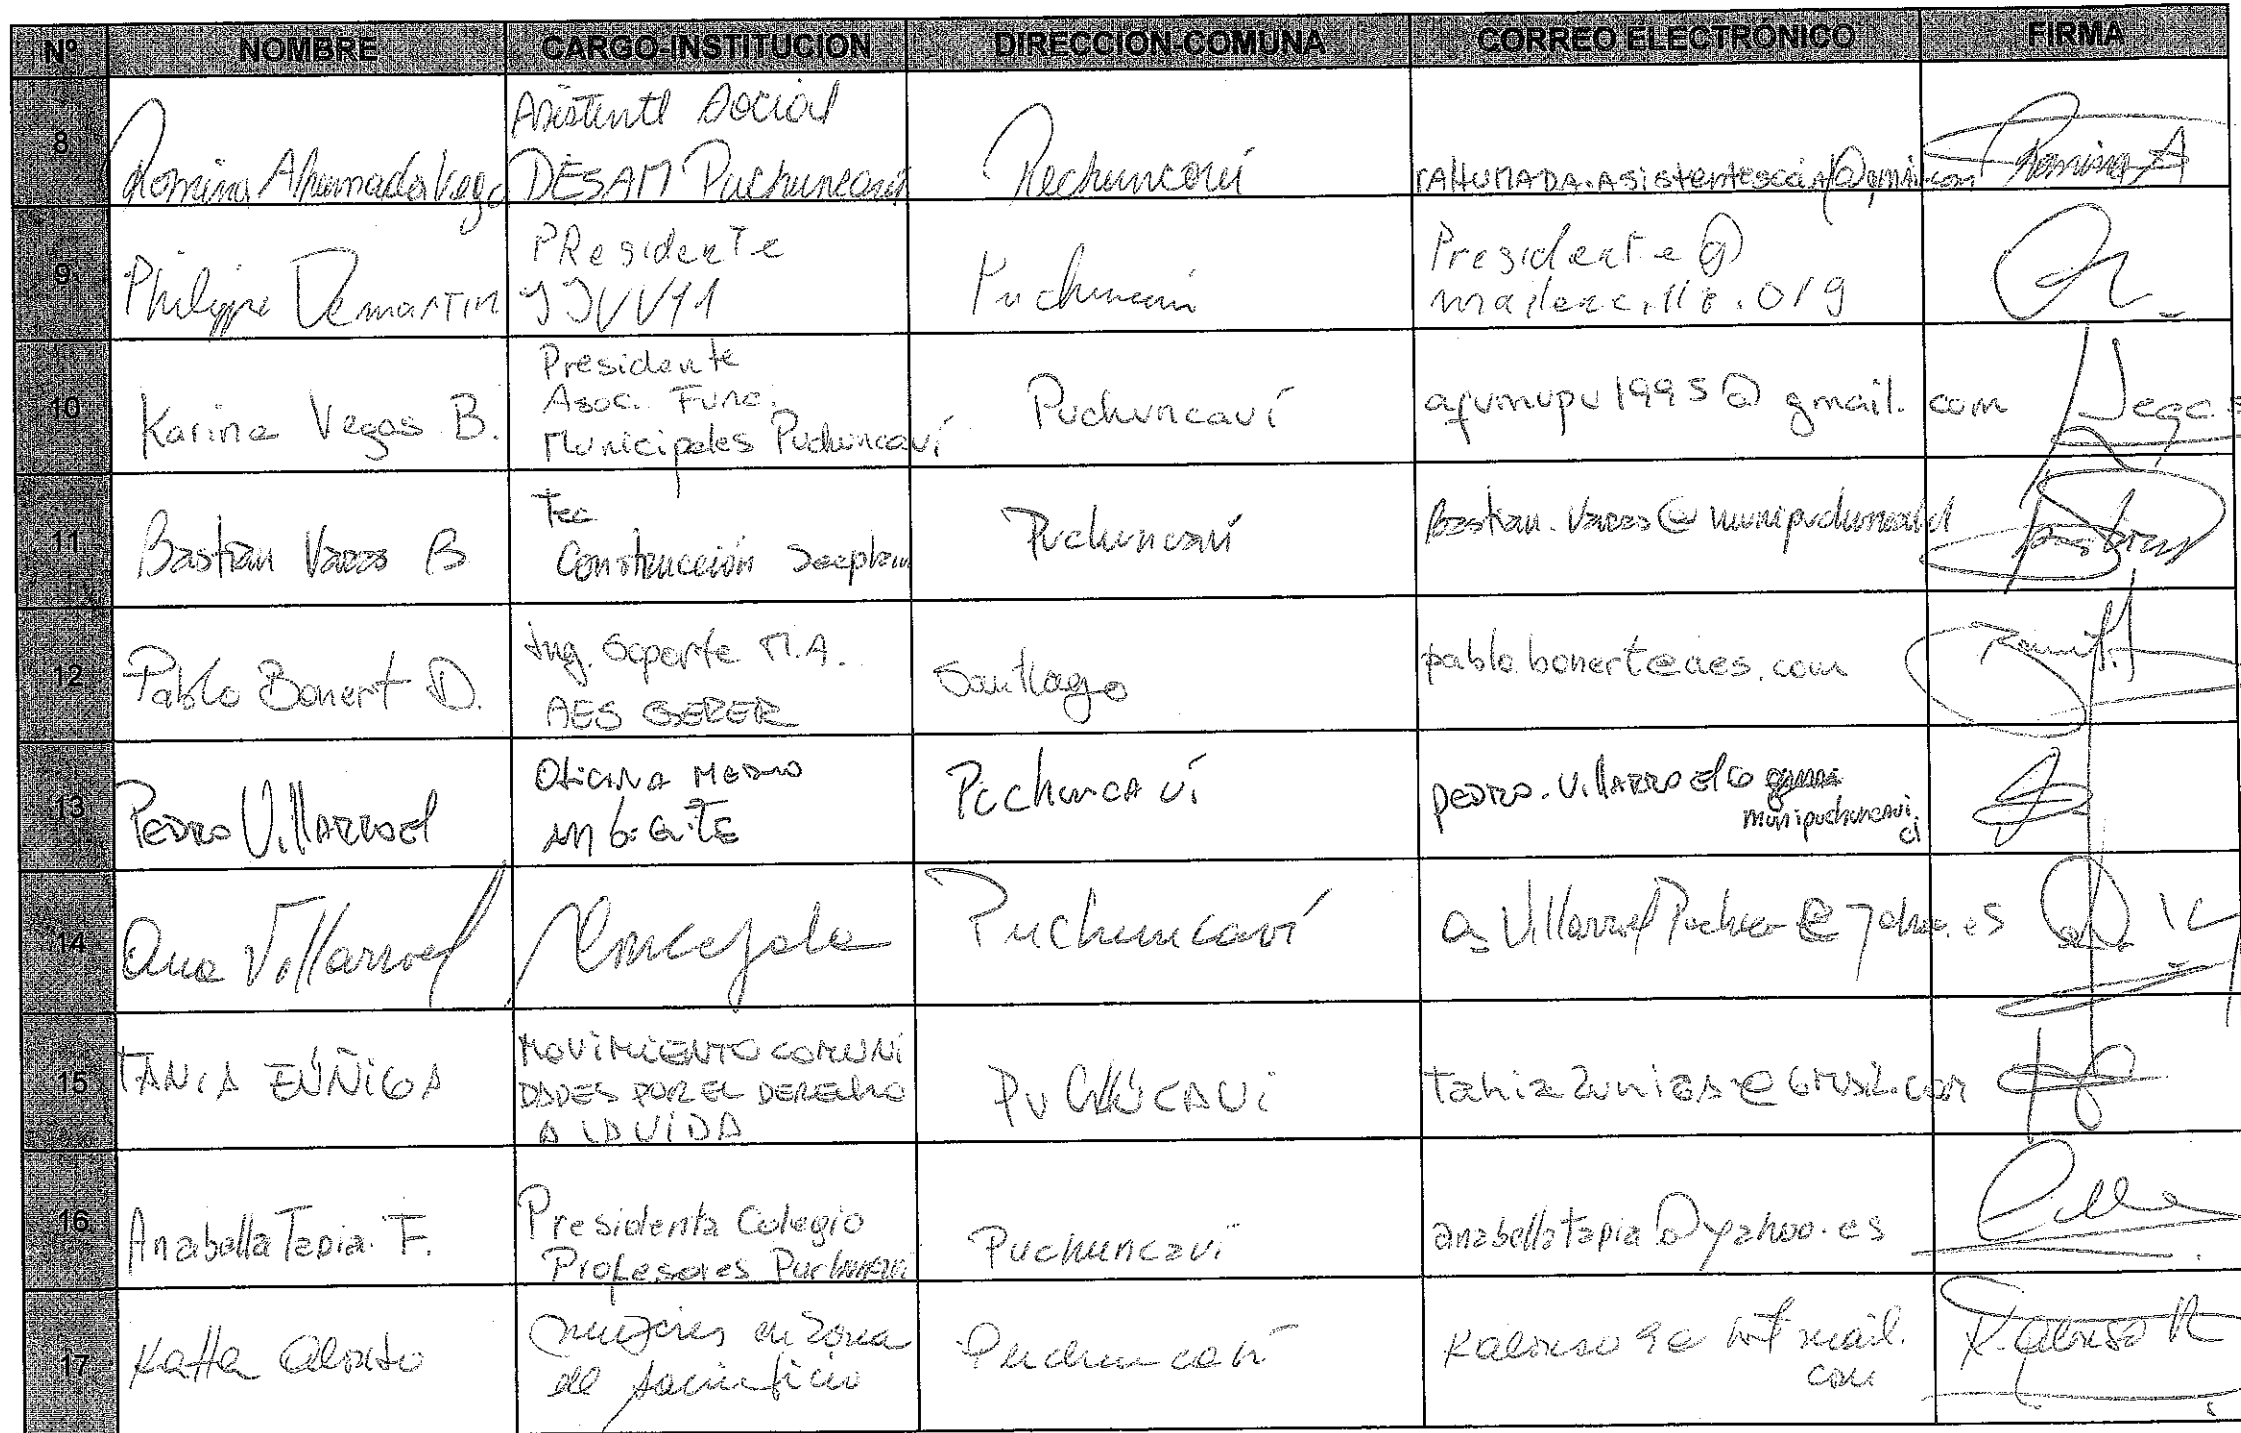 Nº NOMBRE CARGO-INSTITUCION DIRECCION-COMUNA CORREO ELECTRÓNICO FIRMA
8 Romina Ahumada Vega Asistente Social
DESAM Puchuncaví Puchuncaví rAHUMADA.Asistentesocial@gmail.com Romina A
9 Philippe Demartin PResidente
JJVV Puchuncaví Presidente@
10 Karina Vegas B. Presidente
Asoc. Func.
Municipales Puchuncaví Puchuncaví afumupu1995@gmail.com Vegas
11 Bastian Varas B Tec
Construcción Secplan Puchuncaví Bastian.Varas@munipuchuncavi.cl Bastian
12 Pablo Bonert D. Ing. Soporte M.A.
AES GENER Santiago pablo.bonert@aes.com
13 Pedro Villarroel Oficina Medio
Ambiente Puchuncaví pedro.villarroel@
munipuchuncavi.
cl
14 Ana Villarroel Concejala Puchuncaví
15 TANIA ZÚÑIGA MOVIMIENTO COMUNI
DADES POR EL DERECHO
A LA VIDA PUCHUCAVI taniazuniga@GMail.com
16 Anabella Tapia. F. Presidenta Colegio
Profesores Puchuncaví Puchuncaví anabellatapia@yahoo.es
17 Katta Alonso Mujeres en Zona
de sacrificio Puchuncaví kalonso9@hotmail.
com K. Alonso R